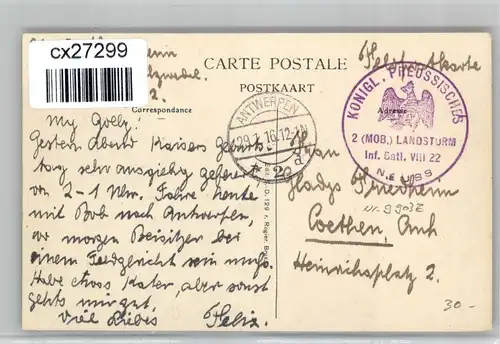 cx27299
CARTE POSTALE
POSTKAART
Feldpostkarte
Correspondance
Adresse
KÖNIGL. PREUSSISCHES
2 (MOB.) LANDSTURM
Inf. Batl. VIII 22
ANTWERPEN
29.1.16.12-1N
My Golly.
Gestern Abend Kaisers Geburts-
tag sehr ausgiebig gefeiert
von 2-1 Uhr. Fahre heute
mit Bob nach Antwerpen,
wo morgen Beisitzer bei
einem Feldgericht sein muss.
Habe etwas Kater, aber sonst
gehts mir gut,
Viel Liebes
Felix.
Frau
Gladys
Coethen, Anh
Heinrichsplatz 2.
30-